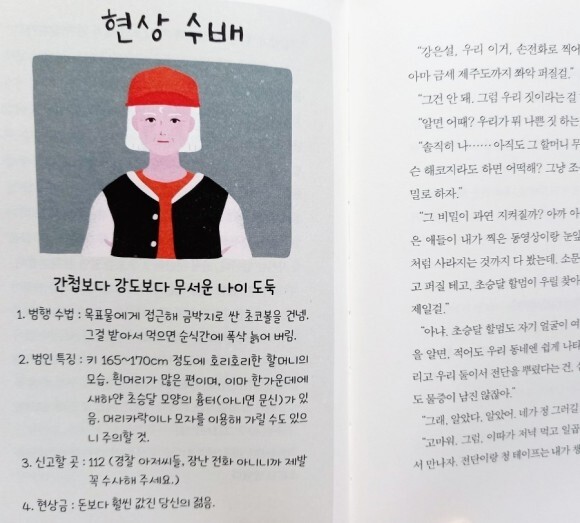 현상 수배
간첩보다 강도보다 무서운 나이 도둑
1. 범행 수법 : 목표물에게 접근해 금박지로 싼 초코볼을 건넴.
그걸 받아서 먹으면 순식간에 폭삭 늙어 버림.
2. 범인 특징 : 키 165~170cm 정도에 호리호리한 할머니의
모습. 흰머리가 많은 편이며, 이마 한가운데에
새하얀 초승달 모양의 흉터(아니면 문신)가 있
음. 머리카락이나 모자를 이용해 가릴 수도 있으
니 주의할 것.
3. 신고할 곳 : 112 (경찰 아저씨들, 장난 전화 아니니까 제발
꼭 수사해 주세요.)
4. 현상금 : 돈보다 훨씬 값진 당신의 젊음.
“강은설, 우리 이거, 손전화로 찍어
아마 금세 제주도까지 쫘악 퍼질걸.”
“그건 안 돼. 그럼 우리 짓이라는 걸
“알면 어때? 우리가 뭐 나쁜 짓 하는
“솔직히 나…… 아직도 그 할머니 무
슨 해코지라도 하면 어떡해? 그냥 조
밀로 하자.”
“그 비밀이 과연 지켜질까? 아까 아
은 애들이 내가 찍은 동영상이랑 눈앞
처럼 사라지는 것까지 다 봤는데. 소문
고 퍼질 테고, 초승달 할멈이 우릴 찾아
제일걸.”
“아냐. 초승달 할멈도 자기 얼굴이 여
을 알면, 적어도 우리 동네엔 쉽게 나타
리고 우리 둘이서 전단을 뿌렸다는 건,
도 물증이 남진 않잖아.”
“그래, 알았다, 알았어. 네가 정 그러길
“고마워. 그럼, 이따가 저녁 먹고 일곱
서 만나자. 전단이랑 청 테이프는 내가 챙